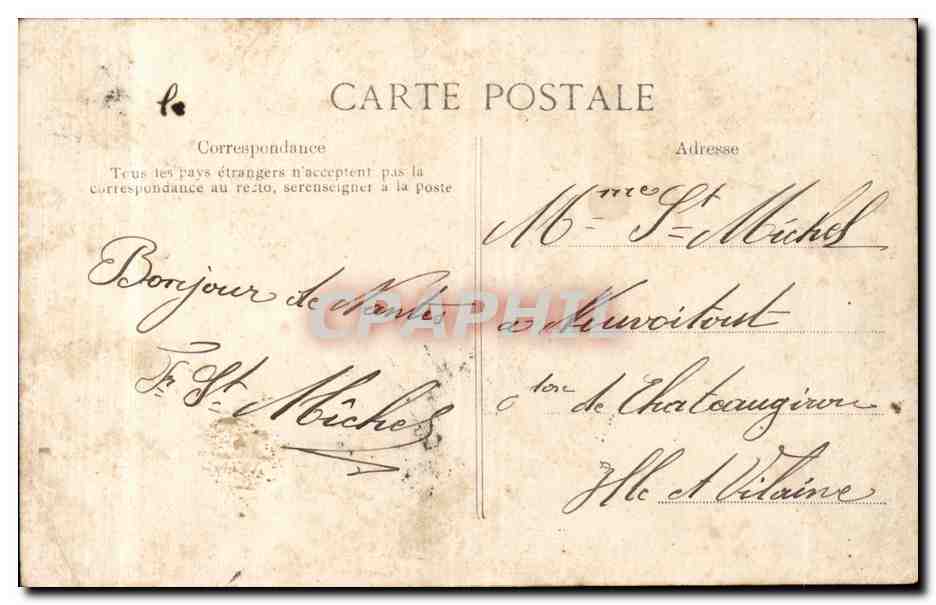 CARTE POSTALE
Correspondance
Tous les pays étrangers n'acceptent pas la
correspondance au recto, se renseigner à la poste
Bonjour de Nantes
Fr St Michel
Adresse
Mme St Michel
à Neuvoitout
con de Chateaugiron
Ille et Vilaine
CPAPHIL